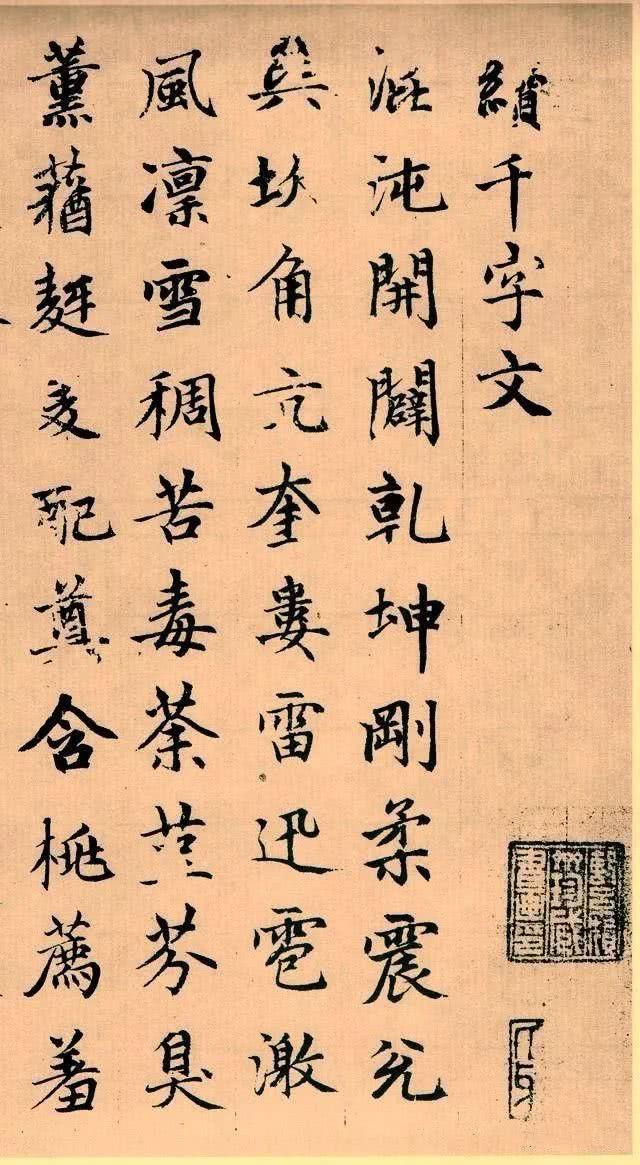 續千字文
混沌開闢乾坤剛柔震兌
巽坎角亢奎婁雷迅雹激
風凜雪稠苦毒荼堇芬臭
薰蕕麰麥配含桃薦羞